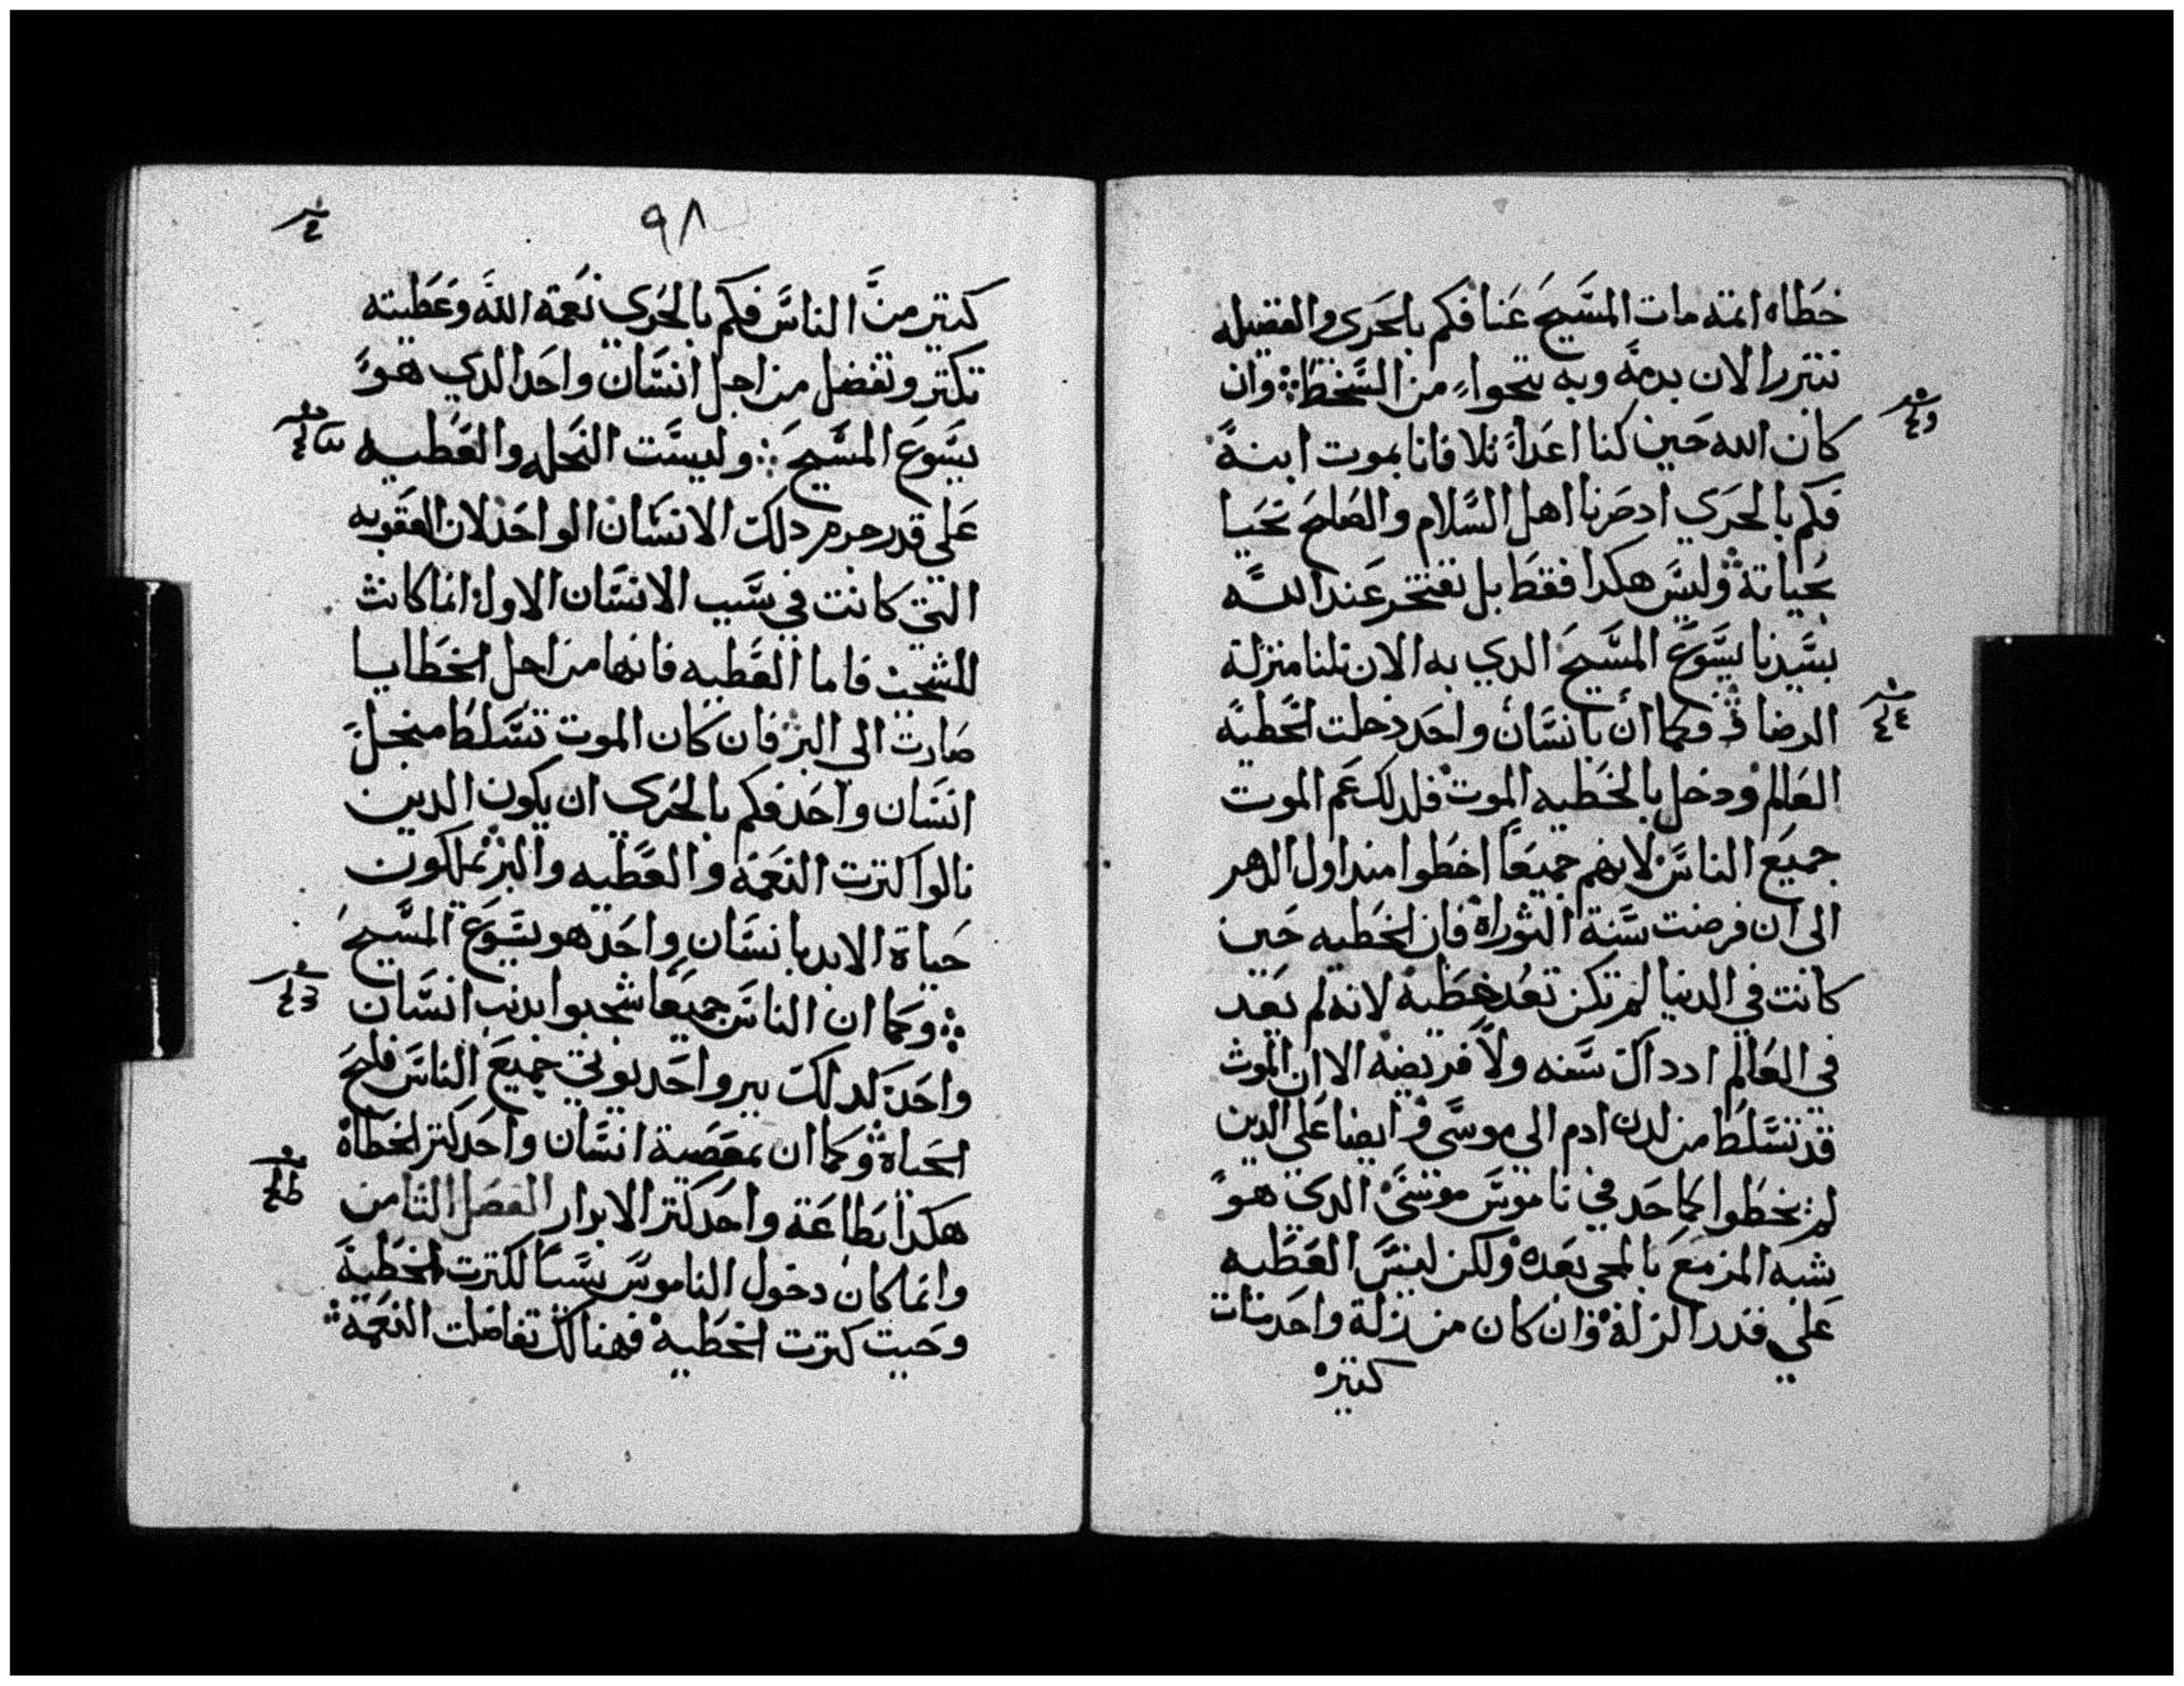 خطاه ايمه مات المسيح عنا فكم بالحرى والفضيله
نتبرر الان بدمه وبه ننجوا من السخط وان
كان الله حين كنا اعدا تلافانا بموت ابنه
فكم بالحري اد صرنا اهل السلام والصلح نحيا
بحياته وليس هكدا فقط بل نفتخر عند الله
بسيدنا يسوع المسيح الدي به الان نلنا منزلة
الرضا وكما أن بانسان واحد دخلت الخطيه
العالم ودخل بالخطيه الموت فلدلك عم الموت
جميع الناس لانهم جميعا اخطوا مند اول الدهر
الى ان فرضت سنة التوراه فان الخطيه حين
كانت في الدنيا لم تكن تعد خطيه لانه لم يعد
في العالم اد داك سنه ولا فريضه الا ان الموت
قد تسلط من لدن ادم الى موسى وايضا على الدين
لم يخطوا كما حد في ناموس موسى الدي هو
شبه المزمع بالمجى بعده ولكن ليس العطيه
على قدر الزلة وان كان من زلة واحد مات
كتير
٩٨
كتير من الناس فكم بالحري نعمة الله وعطيته
تكتر وتفضل من اجل انسان واحد الدي هو
يسوع المسيح وليست النحله والعطيه
على قدر جرم دلك الانسان الواحد لان العقوبه
التي كانت في سبب الانسان الاول انما كانت
للشجب فاما العطيه فانها من اجل الخطايا
صارت الى البر فان كان الموت تسلط من اجل
انسان واحد فكم بالحرى ان يكون الدين
نالوا كترت النعمه والعطيه والبر يملكون
حياة الابد بانسان واحد هو يسوع المسيح
وكما ان الناس جميعا شجبوا بدنب انسان
واحد كدلك ببر واحد يوتي جميع الناس فلج
الحياه وكما ان بمعصية انسان واحد كتر الخطاه
هكدا بطاعة واحد كتر الابرار الفصل الثامن
وانما كان دخول الناموس سببا لكترت الخطية
وحيت كترت الخطيه فهنالك تفاضلت النعمة